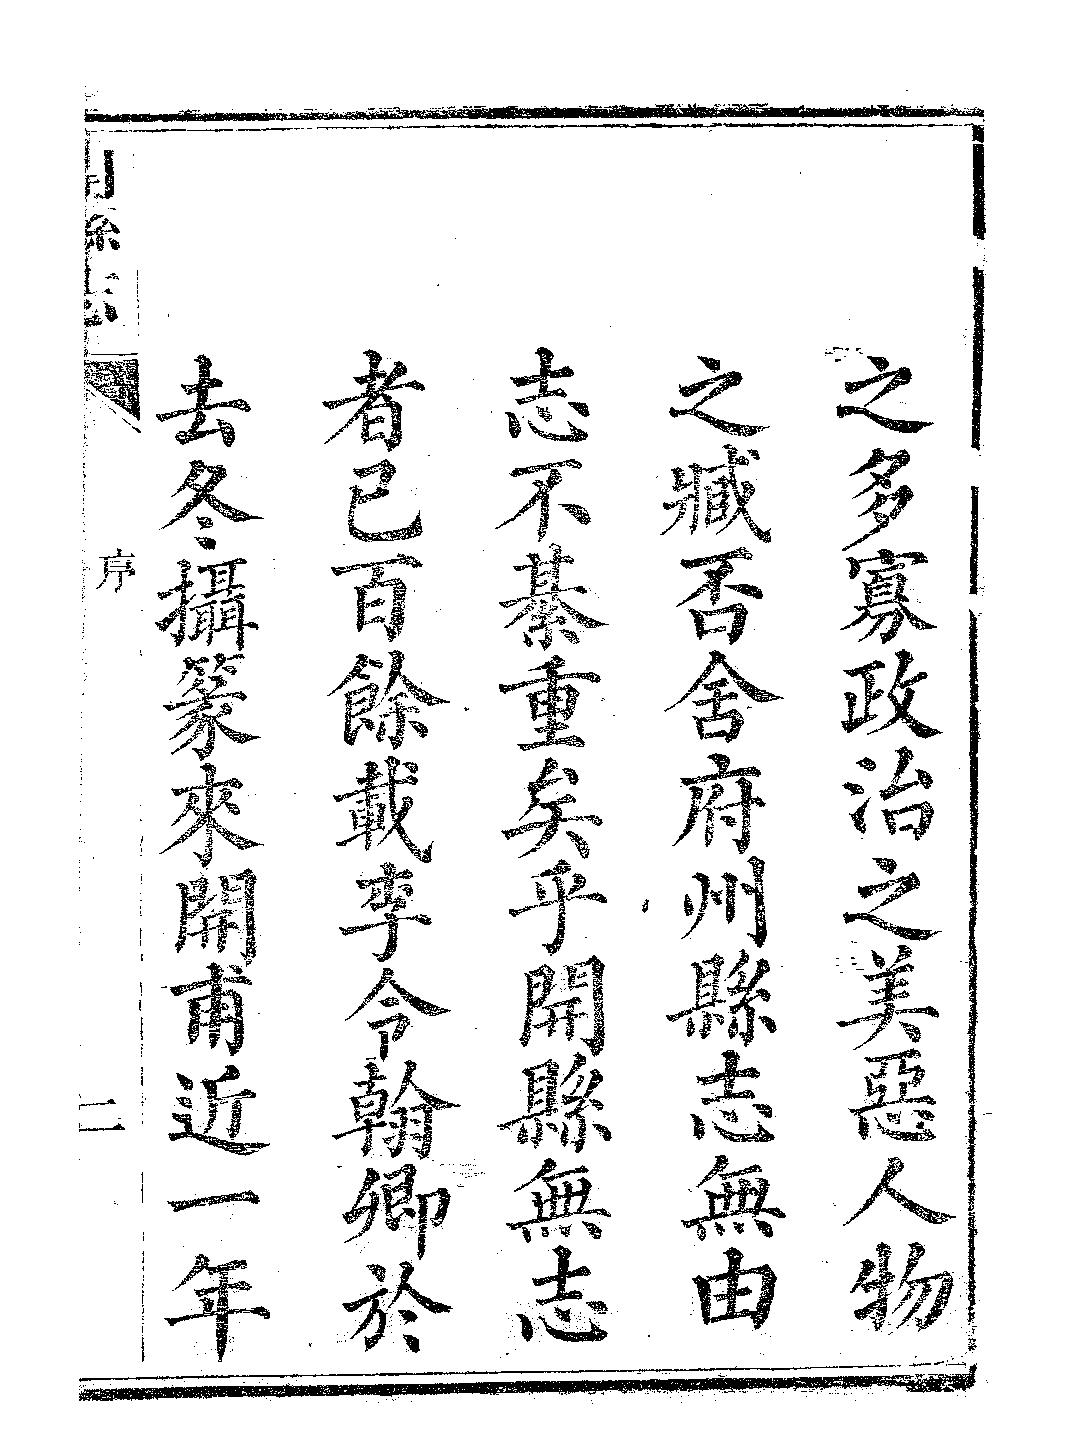 之多寡政治之美惡人物
之臧否舍府州縣志無由
志不綦重矣乎開縣無志
者已百餘載李令翰卿於
去冬攝篆來開甫近一年
開縣志
序
二